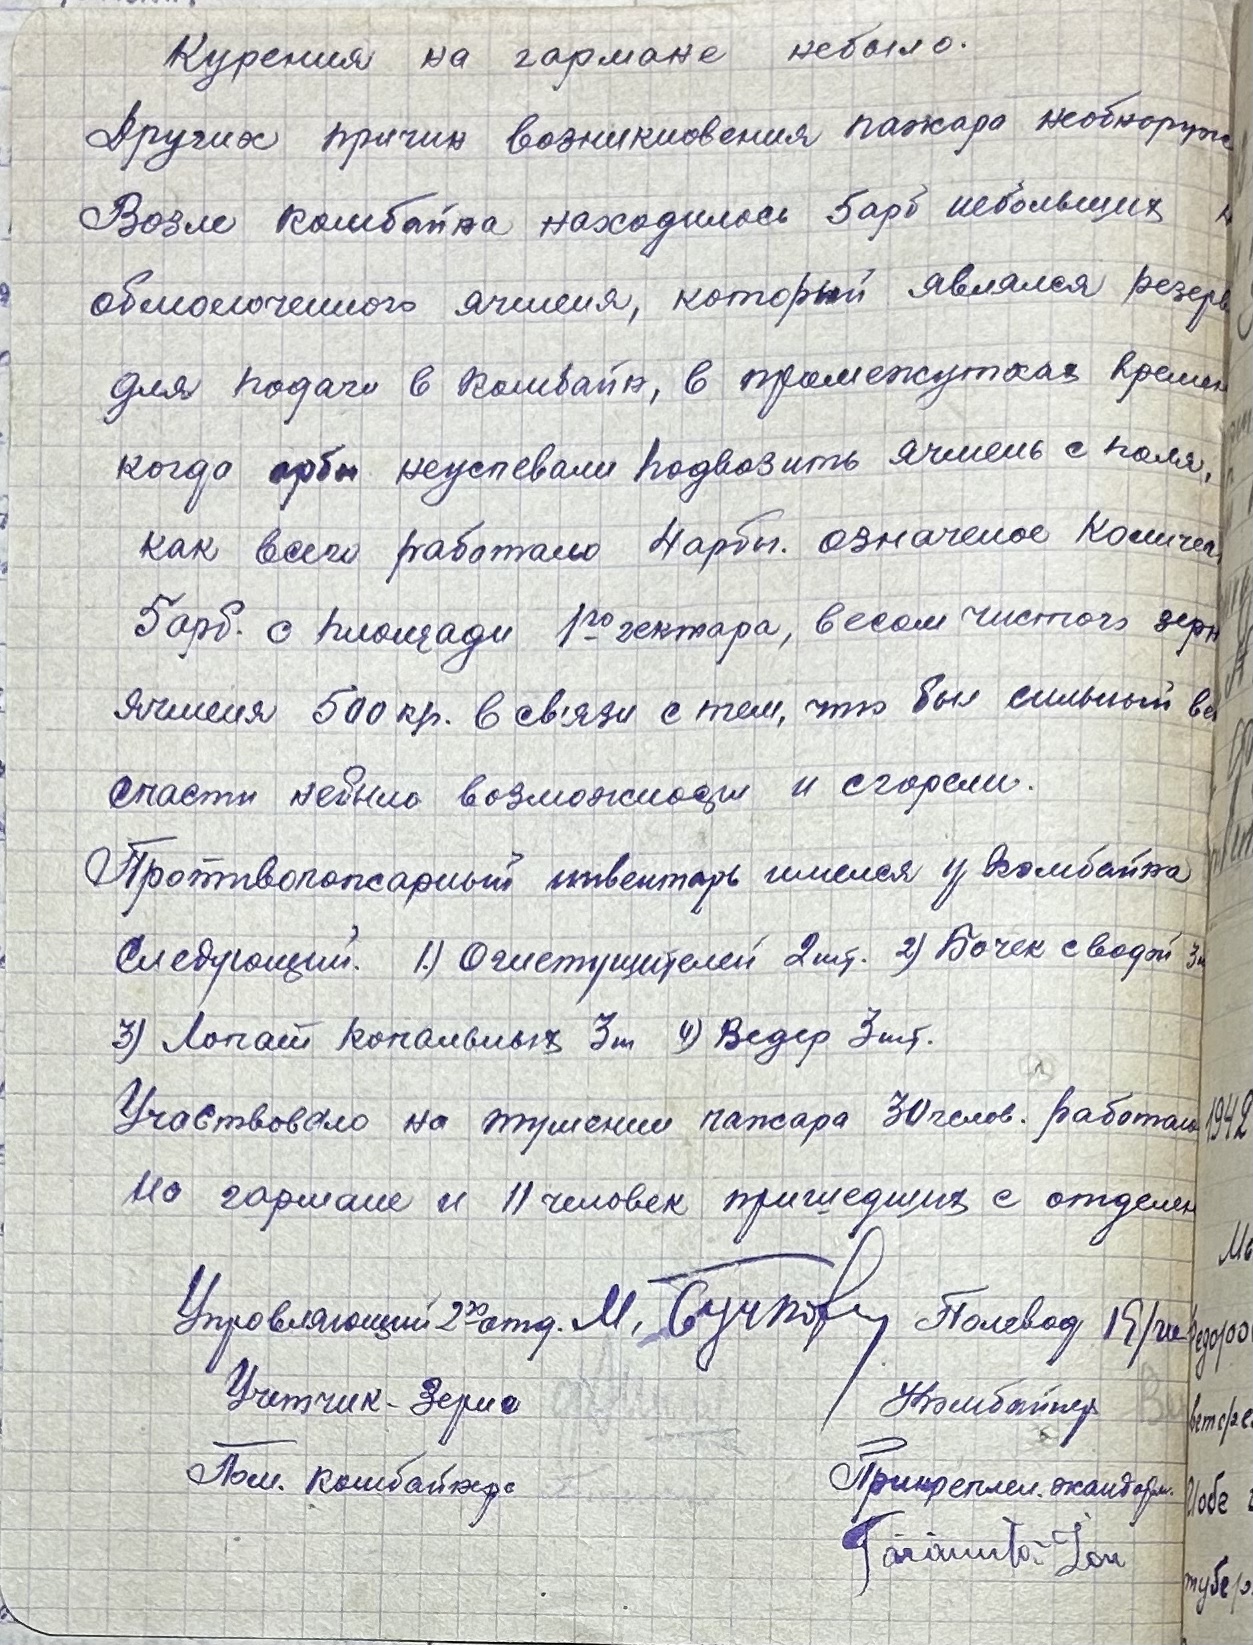 Курения на гармане небыло.
Других причин возникновения пажара необнаруж
Возле комбайна находилось 5 арб небольших н
обмолоченного ячменя, который являлся резерв
для подачи в комбайн, в промежутках времен
когда арбы неуспевали подвозить ячмень с поля,
как всего работало 4 арбы. означеное Количес
5 арб. с площади 1го гектара, весом чистого зерн
ячменя 500 кр. в связи с тем, что был сильный ве
спасти небыло возможности и сгорели.
Противопожарный инвентарь имелся у Комбайна
Следующий. 1) Огнетущителей 2 шт. 2) Бочек с водой 3 ш
3) Лопат копальных 3 ш 4) Ведер 3 шт.
Участвовало на тушении пажара 30 челов. работало
на гармане и 11 человек пришедших с отделен
Управляющий 2го отд. М. Полевод
Учетчик-Зерна Комбайнер
Пом. Комбайнера Прикреплен. жандарм.
1942